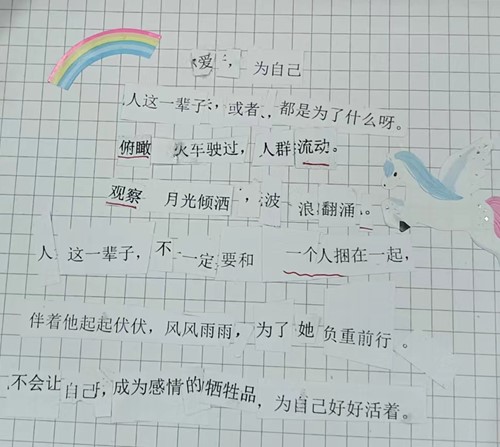 爱，为自己
人这一辈子，或者、都是为了什么呀。
俯瞰。火车驶过，人群流动。
观察 月光倾洒，波浪翻涌。
人这一辈子，不一定要和一个人捆在一起，
伴着他起起伏伏，风风雨雨，为了她负重前行。
不会让自己，成为感情的牺牲品，为自己好好活着。